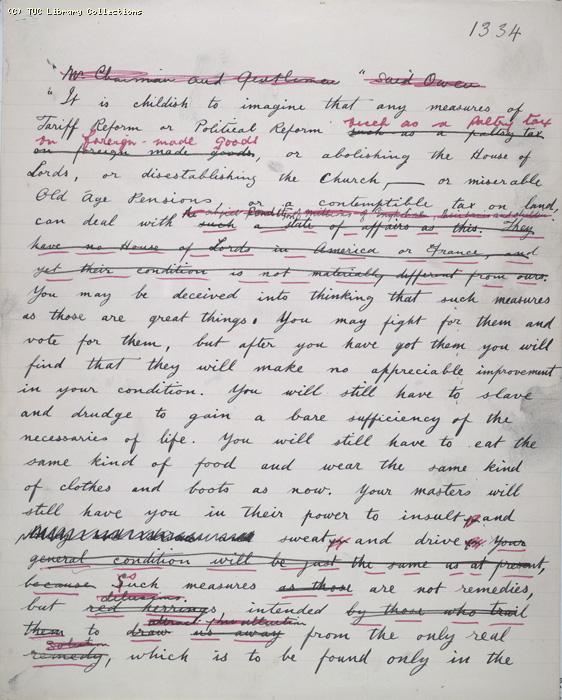 (C) TUC Library Collections
1334
Mr Chairman and Gentlemen" "said Owen
"It is childish to imagine that any measures of
such as a paltry tax
Tariff Reform or Political Reform such as a paltry tax
on foreign-made goods
on foreign made goods, or abolishing the House of
Lords, or disestablishing the Church, — or miserable
Old Age Pensions or a contemptible tax on land,
can deal with such a state of affairs as this. They
have no House of Lords in America or France, and
yet their condition is not materially different from ours.
You may be deceived into thinking that such measures
as those are great things. You may fight for them and
vote for them, but after you have got them you will
find that they will make no appreciable improvement
in your condition. You will still have to slave
and drudge to gain a bare sufficiency of the
necessaries of life. You will still have to eat the
same kind of food and wear the same kind
of clothes and boots as now. Your masters will
still have you in their power to insult and
sweat and drive Your
general condition will be just the same as at present,
because Such measures as those are not remedies,
delusions
but red herrings, intended by those who trail
them to draw us away from the only real
solution
remedy, which is to be found only in the